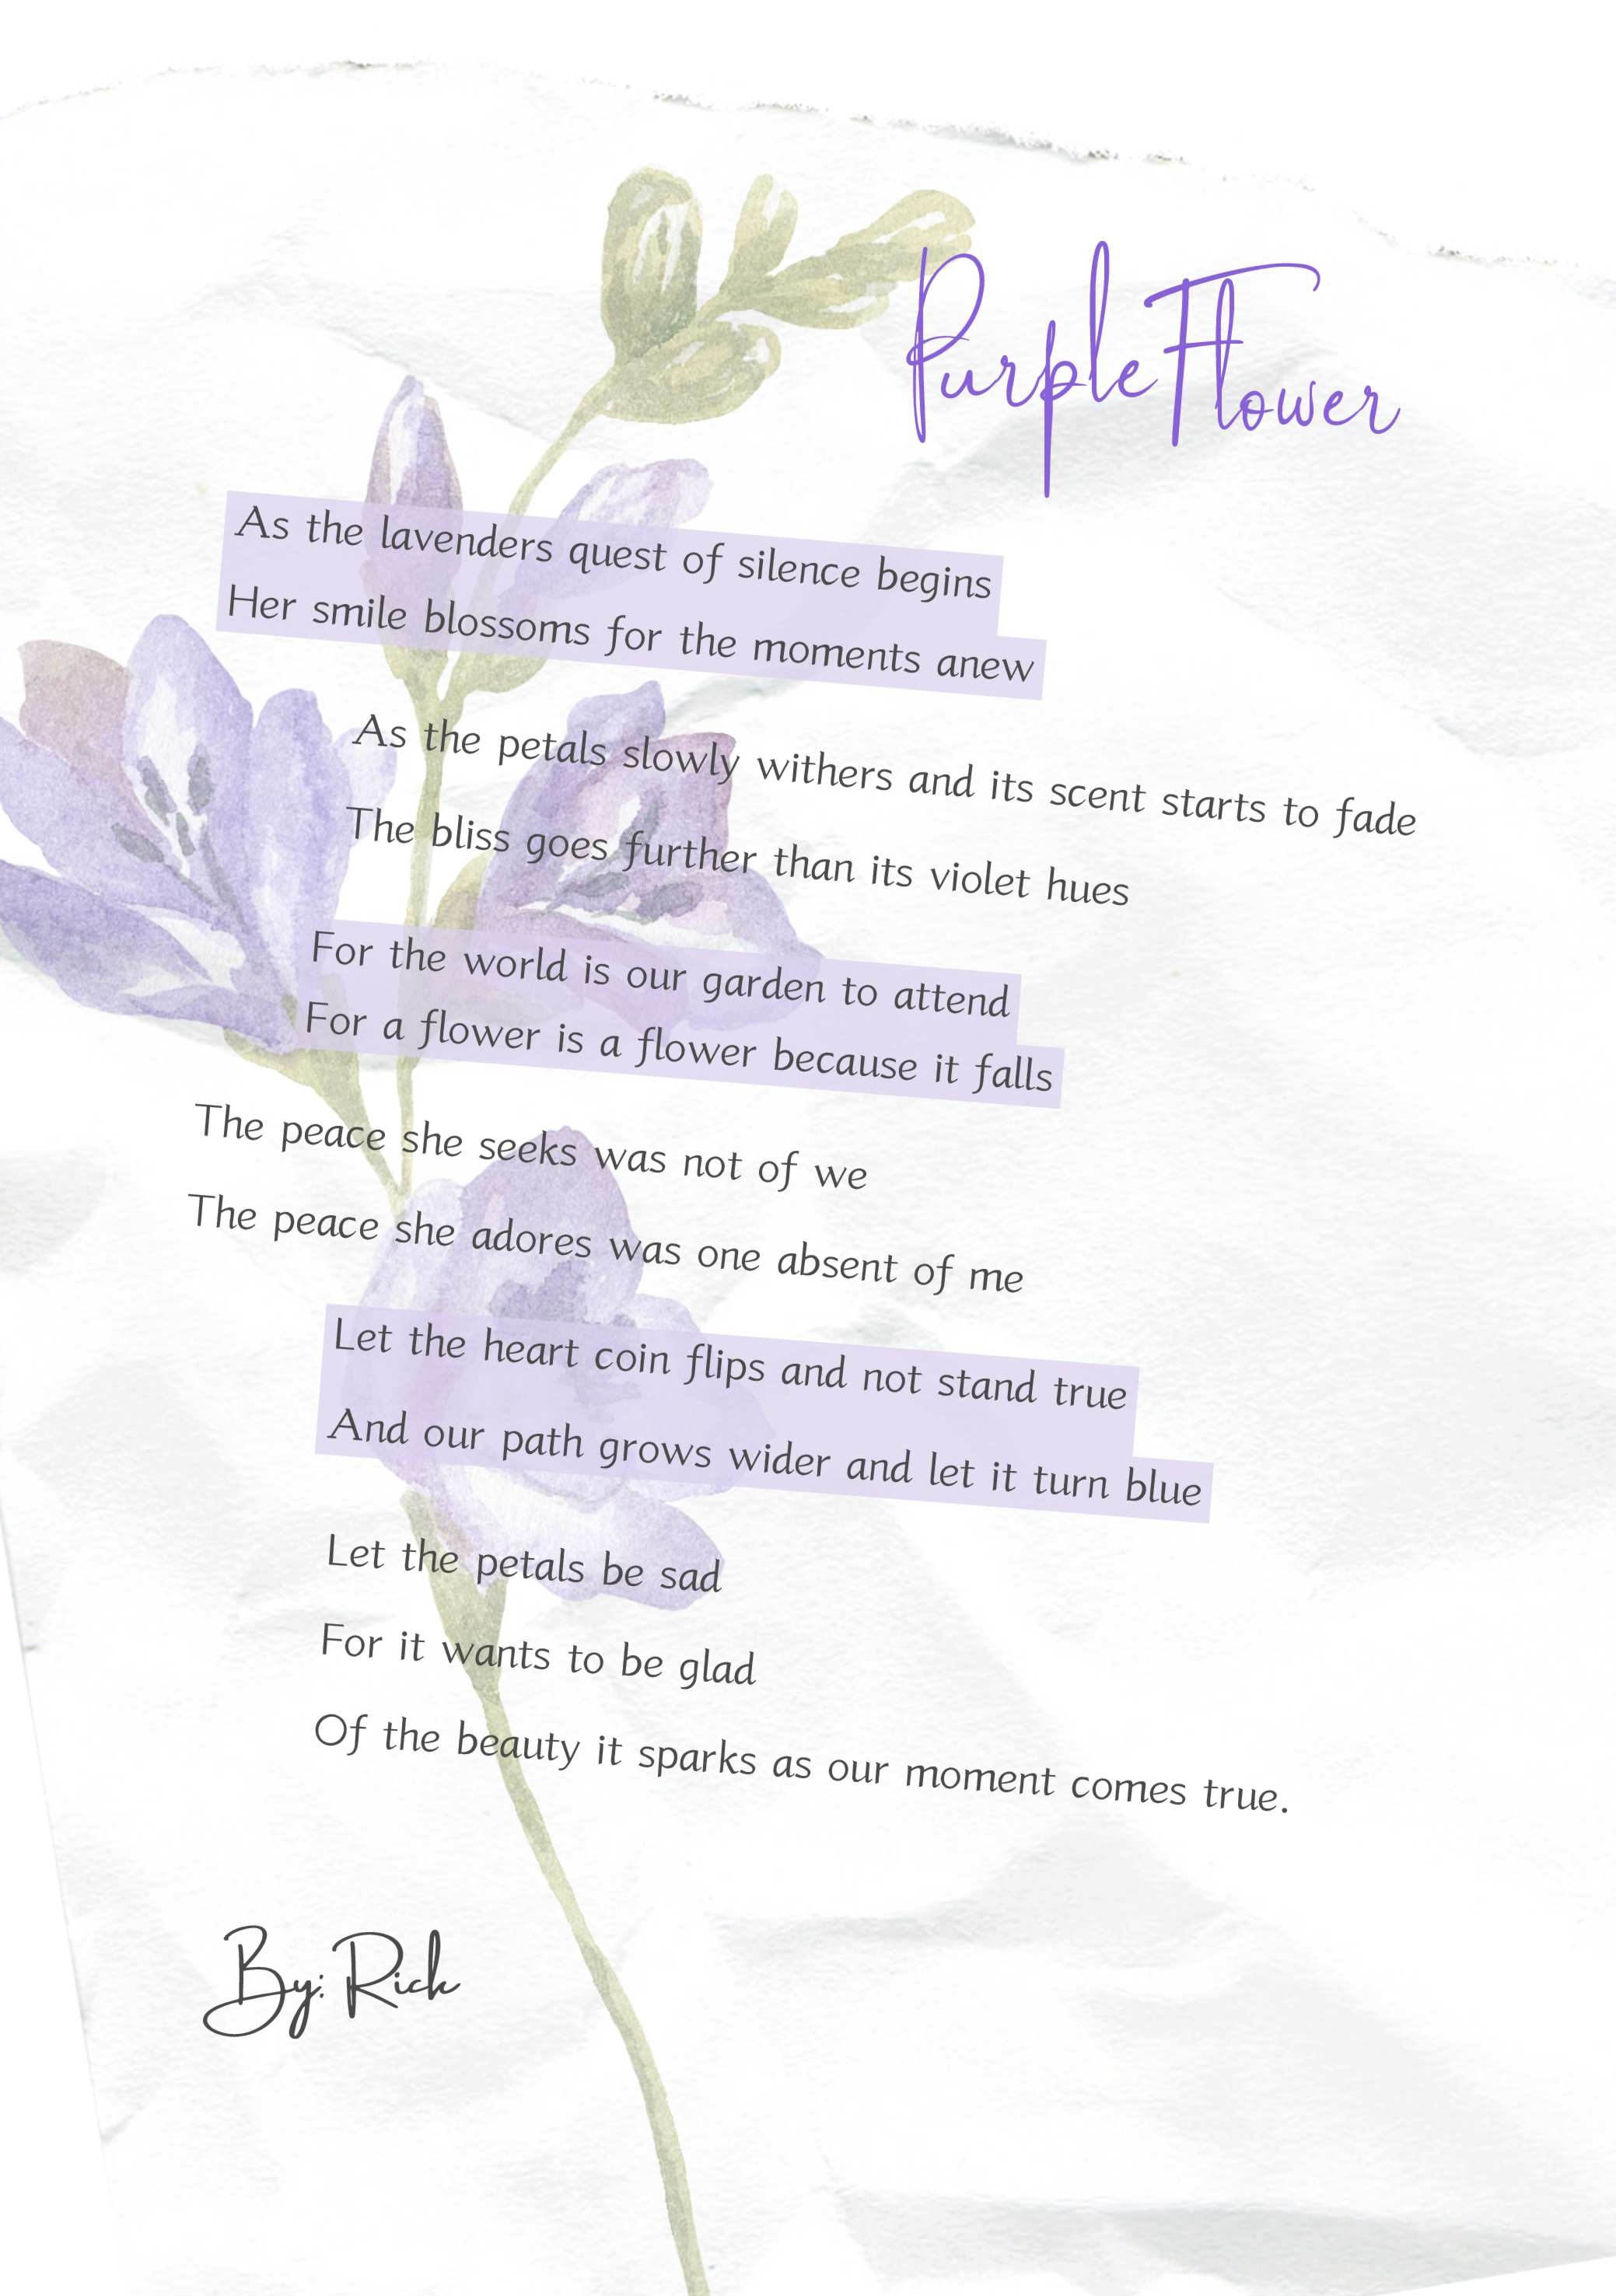 Purple Flower
As the lavenders quest of silence begins
Her smile blossoms for the moments anew
As the petals slowly withers and its scent starts to fade
The bliss goes further than its violet hues
For the world is our garden to attend
For a flower is a flower because it falls
The peace she seeks was not of we
The peace she adores was one absent of me
Let the heart coin flips and not stand true
And our path grows wider and let it turn blue
Let the petals be sad
For it wants to be glad
Of the beauty it sparks as our moment comes true.
By: Rick